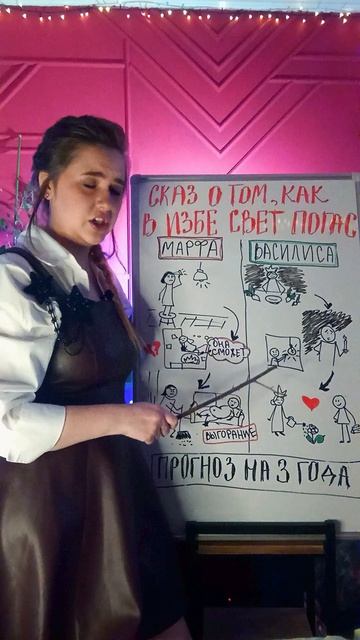 СКАЗ О ТОМ, КАК
В ИЗБЕ СВЕТ ПОГАС
МАРФА
ВАСИЛИСА
ОНА
СМОЖЕТ
ВЫГОРАНИЕ
ПРОГНОЗ НА 3 ГОДА